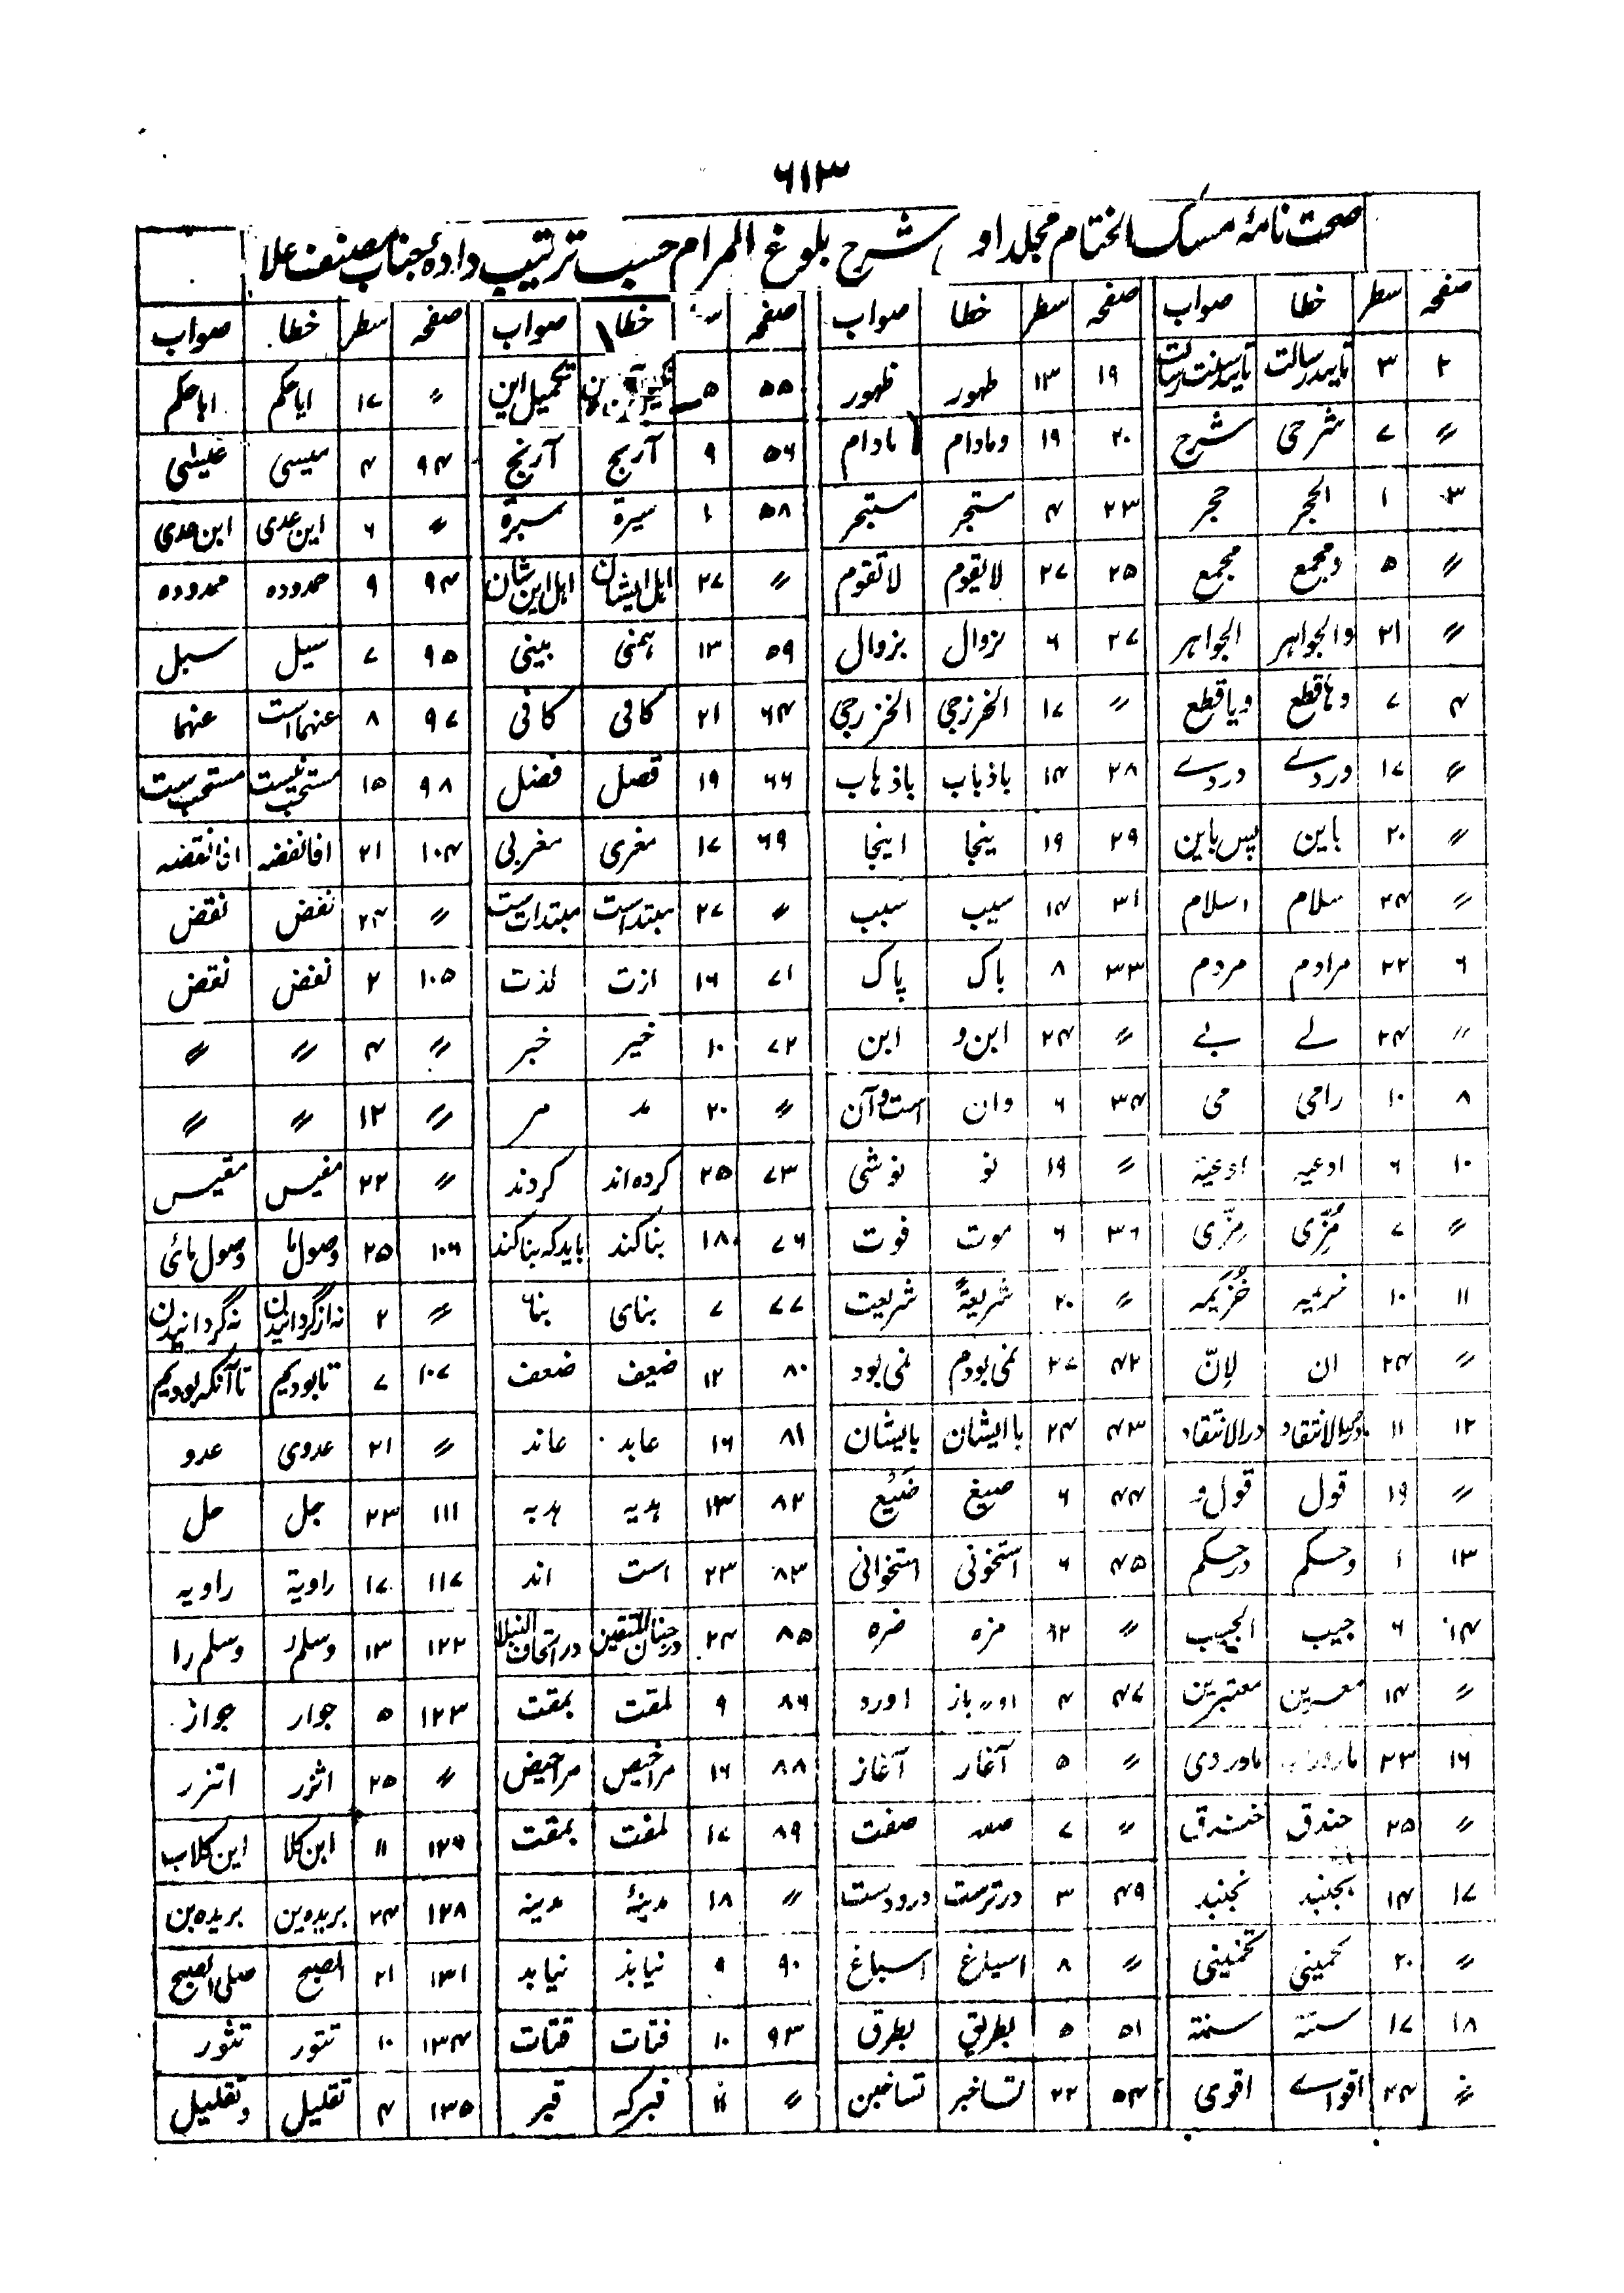 ۶۱۳
صحت نامۂ مسک الختام مجلد اول شرح بلوغ المرام حسب ترتیب دادۂ جناب مصنف علا
صفحہ سطر خطا صواب صفحہ سطر خطا صواب صفحہ خطا صواب صفحہ سطر خطا صواب
۲ ۳ تایید رسالت تایید سنت رسالت ۱۹ ۱۳ طهور ظهور ۵۵ ۵ تکمیل این 〃 ۱۷ ایاحکم اباحکم
〃 ۷ شرحی شرح ۲۰ ۱۹ ومادام مادام ۵۶ ۹ آریج آرنج ۹۴ ۴ میسی عیسٰی
۳ ۱ الحجر حجر ۲۳ ۴ ستجر ستبحر ۵۸ ۱ سیرة سبرة 〃 ۶ این عدی ابن عدی
〃 ۵ ومجمع مجمع ۲۵ ۲۷ لایقوم لاتقوم 〃 ۲۷ اہل ایشان اہل این شان ۹۴ ۹ حمدوده ممدوده
〃 ۲۱ والجواہر الجواہر ۲۷ ۶ نزوال بزوال ۵۹ ۱۳ بینی ۹۵ ۷ سیل سبل
۴ ۷ وماقطع ویاقطع 〃 ۱۷ الخرزجی الخزرجی ۶۴ ۲۱ کافی کافی ۹۷ ۸ عنہما است عنہما
〃 ۱۷ وردے دردے ۲۸ ۱۴ باذباب باذہاب ۶۶ ۱۹ فصل فضل ۹۸ ۱۵ مستحب نیست مستحب ست
〃 ۲۰ باین پس باین ۲۹ ۱۹ ینجا اینجا ۶۹ ۱۷ مغری مغربی ۱۰۴ ۲۱ افانفضه افانقضه
〃 ۲۴ سلام اسلام ۳۱ ۱۴ سیب سبب 〃 ۲۷ مبتداست مبتدات ست 〃 ۲۴ نفض نقض
۶ ۲۲ مرادم مردم ۳۳ ۸ باک پاک ۷۱ ۱۶ ازت لذت ۱۰۵ ۲ نفض نقض
〃 ۲۴ لے بے 〃 ۲۴ ابن و ابن ۷۲ ۱۰ خیر خبر 〃 ۴ 〃 〃
۸ ۱۰ رامی می ۳۴ ۶ وان است وآن 〃 ۲۰ مد مر 〃 ۱۲ 〃 〃
۱۰ ۶ ادعیه ادعیة 〃 ۱۹ نو نوشی ۷۳ ۲۵ کرده اند کردند 〃 ۲۲ مفیس مقیس
〃 ۷ مُزّی مِزّی ۳۶ ۶ موت فوت ۷۶ ۱۸ بناکند باید که بناکند ۱۰۶ ۲۵ وصول ما وصول مائی
۱۱ ۱۰ خُزیمه 〃 ۲۰ شریعةً شریعت ۷۷ ۷ بنای بناء 〃 ۲ نه از گردانیدن نه گردانیدن
〃 ۲۴ ان لِانّ ۴۲ ۲۷ نمی بودم نمی بود ۸۰ ۱۲ ضعیف ضعف ۱۰۷ ۷ تا بودیم تا آنکہ بودیم
۱۲ ۱۱ در الانتقاد ۴۳ ۲۴ با ایشان بایشان ۸۱ ۱۶ عابد عاند 〃 ۲۱ عدوی عدو
〃 ۱۹ قول قول و ۴۴ ۶ صیغ ضَبُع ۸۲ ۱۳ ہدیه ہدبه ۱۱۱ ۲۳ جل حل
۱۳ ۱ وحکم درحکم ۴۵ ۶ استخونی استخوانی ۸۳ ۲۳ است اند ۱۱۷ ۱۷ راویة راویه
۱۴ ۶ جیب الجیب 〃 ۱۲ مزه ضره ۸۵ ۲۴ در جنان المتقین در اتحاف النبلا ۱۲۲ ۱۳ وسلم وسلم را
〃 ۱۴ معتبرین ۴۷ ۴ باز اورد ۸۶ ۹ لمقت بمقت ۱۲۳ ۵ جوار جواز
۱۶ ۲۳ ماوردی 〃 ۵ آغار آغاز ۸۸ ۱۶ مراحیص مراحیض 〃 ۲۵ اثزر اتنزر
〃 ۲۵ حندق خندق 〃 ۷ صفت ۸۹ ۱۷ لمفت بمقت ۱۲۶ ۱۱ ابن کلا ابن کلاب
۱۷ ۱۴ بجنبد نجنبد ۴۹ ۳ در ترست درودست 〃 ۱۸ مدینۂ مدینه ۱۲۸ ۲۴ بریده ین بریده بن
〃 ۲۰ تخمینی 〃 ۸ اسیاغ اسباغ ۹۰ ۹ نیاید نیابد ۱۳۱ ۲۱ الصبح صلی الصبح
۱۸ ۱۷ ستة سنة ۵۱ ۵ بطریق بطرق ۹۳ ۱۰ فتات قتات ۱۳۴ ۱۰ تتور تثور
〃 ۲۴ اقواے اقوی ۵۴ ۲۲ تساخبر تساخین 〃 ۱۱ قبرکہ قبر ۱۳۵ ۴ تقلیل وتقلیل